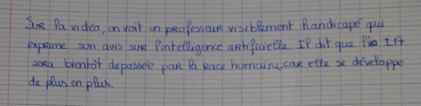 Sur la vidéo, on voit un professeur visiblement handicapé qui
exprime son avis sur l'intelligence artificielle. Il dit que l'IA
sera bientôt depassée par la race humaine, car elle se développe
de plus en plus.